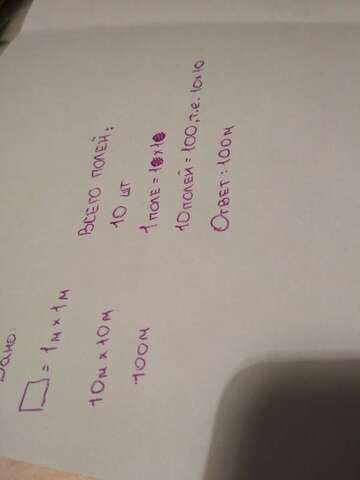 Дано:
= 1м x 1м
10м x 10м
100м
ВСЕГО ПОЛЕЙ:
10 шт
1 ПОЛЕ = 10x10
10 ПОЛЕЙ = 100, т.е. 10x10
ОТВЕТ: 100м